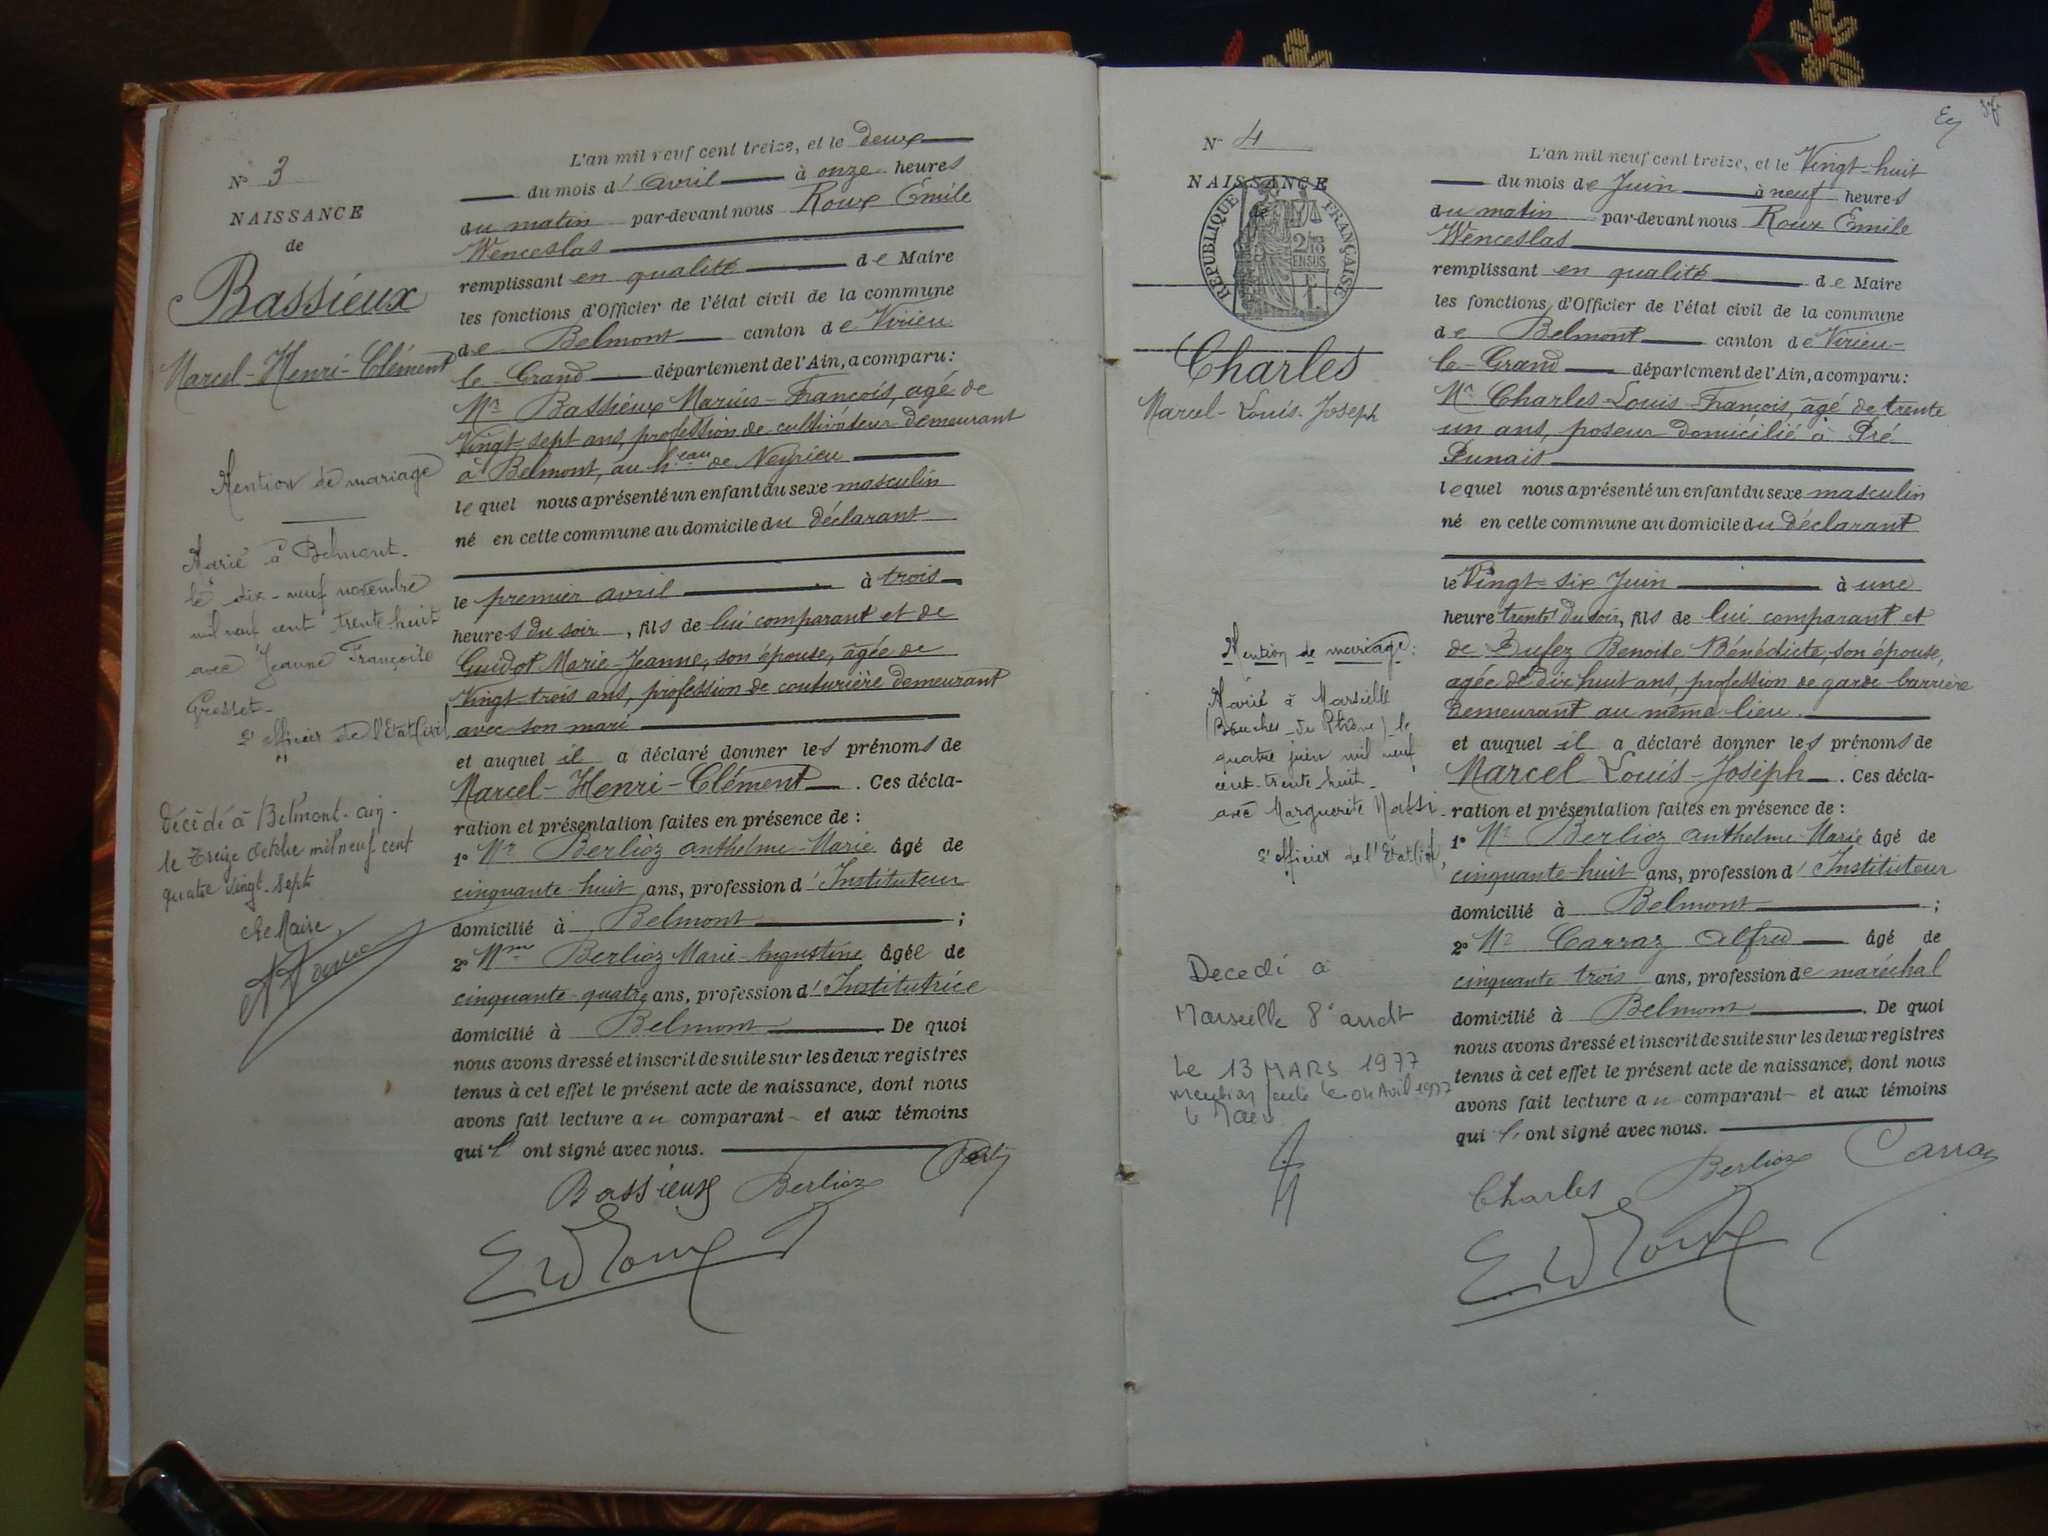 N° 3
NAISSANCE
de
Bassieux
Marcel-Henri-Clément
Mention de mariage
Marié à Belmont
le dix-neuf novembre
mil neuf cent trente huit
avec Jeanne Françoise
Gresset
L'officier de l'Etat Civil,
Décédé à Belmont-ain.
le Treize Octobre mil neuf cent
quatre vingt-sept
Le Maire,
L'an mil neuf cent treize, et le deux
du mois d'avril à onze heures
du matin par-devant nous Roux Emile
Wenceslas
remplissant en qualité de Maire
les fonctions d'Officier de l'état civil de la commune
de Belmont canton de Virieu
le-Grand département de l'Ain, a comparu:
Mr Bassieux Marius-François, agé de
Vingt-sept ans, profession de cultivateur demeurant
à Belmont, au heau de Neyrieu
lequel nous a présenté un enfant du sexe masculin
né en cette commune au domicile du déclarant
le premier avril à trois
heures du soir, fils de lui comparant et de
Guidot Marie-Jeanne, son épouse, âgée de
Vingt-trois ans, profession de couturière demeurant
avec son mari
et auquel il a déclaré donner les prénoms de
Marcel-Henri-Clément. Ces décla-
ration et présentation faites en présence de :
1° Mr Berlioz Anthelme-Marie âgé de
cinquante-huit ans, profession d'Instituteur
domicilié à Belmont ;
2° Mme Berlioz Marie-Augustine âgée de
cinquante-quatre ans, profession d'Institutrice
domicilié à Belmont. De quoi
nous avons dressé et inscrit de suite sur les deux registres
tenus à cet effet le présent acte de naissance, dont nous
avons fait lecture au comparant et aux témoins
qui l'ont signé avec nous.
Bassieux Berlioz
E W Roux
N° 4
NAISSANCE
de
RÉPUBLIQUE FRANÇAISE
Charles
Marcel-Louis-Joseph
Mention de mariage:
Marié à Marseille
(Bouches-du-Rhône) le
quatre juin mil neuf
cent-trente-huit
avec Marguerite
L'officier de l'Etat Civil,
Decedé à
Marseille 8e arrdt
Le 13 MARS 1977
mention faite le 04 Avril 1977
L'an mil neuf cent treize, et le Vingt-huit
du mois de Juin à neuf heures
du matin par-devant nous Roux Emile
Wenceslas
remplissant en qualité de Maire
les fonctions d'Officier de l'état civil de la commune
de Belmont canton de Virieu-
le-Grand département de l'Ain, a comparu:
Mr Charles Louis François, âgé de trente
un ans, poseur domicilié à Pré
Punais
lequel nous a présenté un enfant du sexe masculin
né en cette commune au domicile du déclarant
le Vingt-six Juin à une
heure trente du soir, fils de lui comparant et
de Dufez Benoite Bénédicte, son épouse,
agée de dix huit ans, profession de garde-barrière
demeurant au même lieu.
et auquel il a déclaré donner les prénoms de
Marcel Louis-Joseph. Ces décla-
ration et présentation faites en présence de :
1° Mr Berlioz Anthelme-Marie âgé de
cinquante-huit ans, profession d'Instituteur
domicilié à Belmont ;
2° Mr Carraz Alfred âgé de
cinquante trois ans, profession de maréchal
domicilié à Belmont. De quoi
nous avons dressé et inscrit de suite sur les deux registres
tenus à cet effet le présent acte de naissance, dont nous
avons fait lecture au comparant et aux témoins
qui l'ont signé avec nous.
Charles Berlioz Carraz
E W Roux